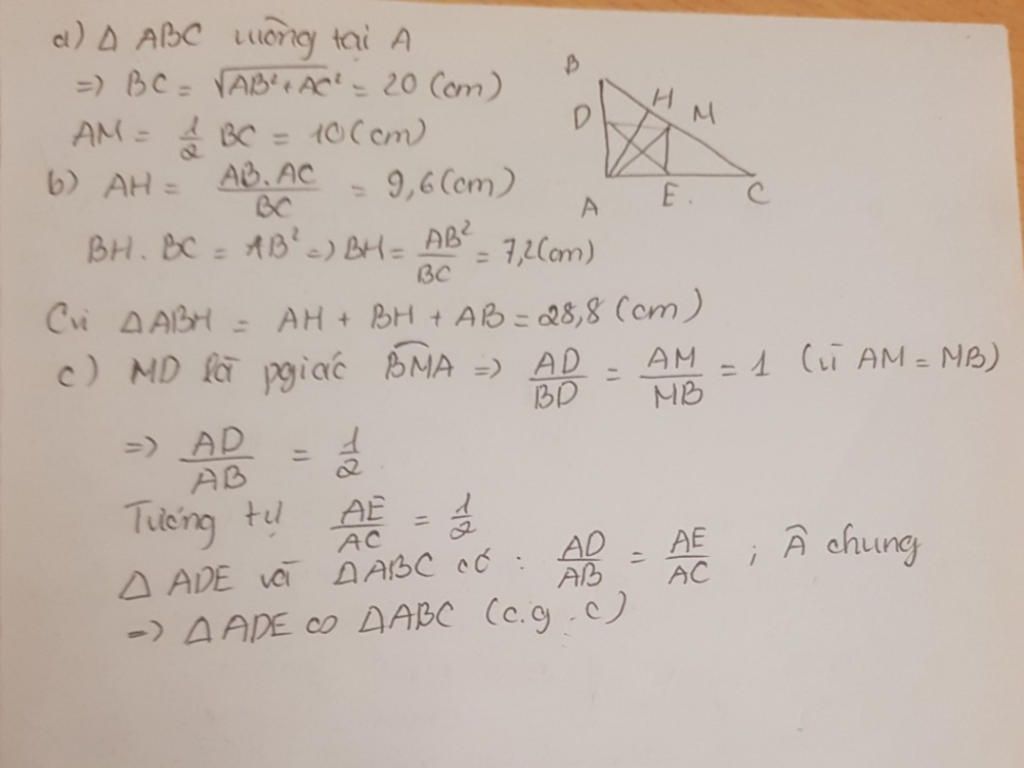 a) Δ ABC vuông tại A
=> BC = √AB²+AC² = 20 (cm)
AM = 1/2 BC = 10 (cm)
b) AH = AB.AC/BC = 9,6 (cm)
BH . BC = AB² => BH = AB²/BC = 7,2 (cm)
B
D
H
M
A
E.
C
Cvi ΔABH = AH + BH + AB = 28,8 (cm)
c) MD là pgiác BMA => AD/BD = AM/MB = 1 (vì AM = MB)
=> AD/AB = 1/2
Tương tự AE/AC = 1/2
Δ ADE và ΔABC có : AD/AB = AE/AC ; Â chung
=> ΔADE ∽ ΔABC (c.g.c)